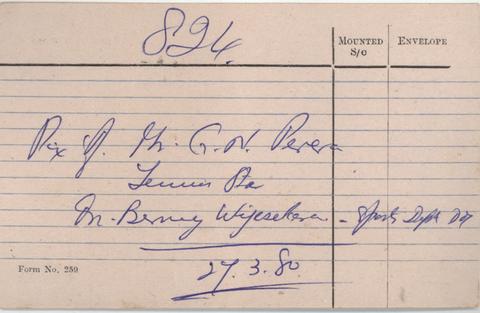 824.
MOUNTED S/C
ENVELOPE
Pix of Mr. G. N. Perera
Tennis
Mr. Berney Wijesekera - Sports Dept
27.3.80.
Form No. 259